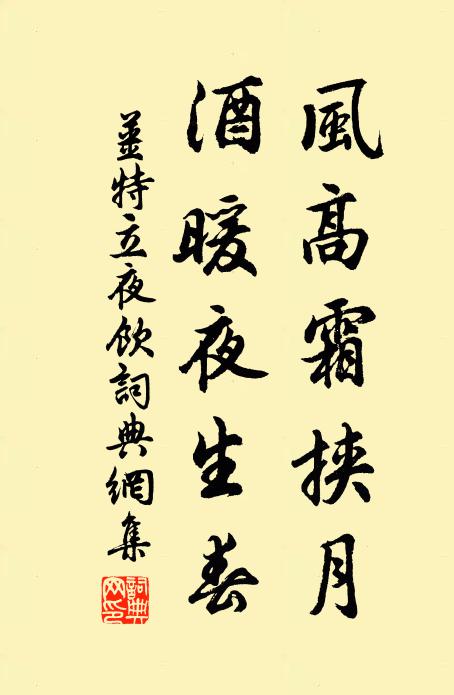 風高霜挾月
酒暖夜生春
姜特立夜飲詞典網集
詞典网印